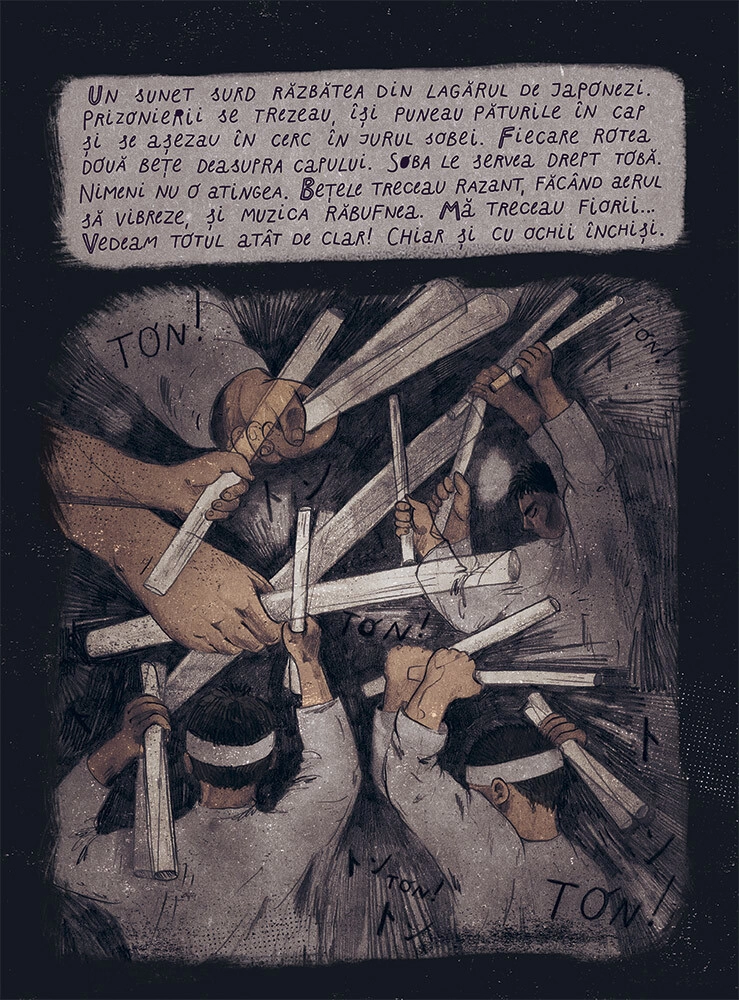 Un sunet surd răzbătea din lagărul de japonezi.
Prizonierii se trezeau, își puneau păturile în cap
și se așezau în cerc în jurul sobei. Fiecare rotea
două bețe deasupra capului. Soba le servea drept tobă.
Nimeni nu o atingea. Bețele treceau razant, făcând aerul
să vibreze, și muzica răbufnea. Mă treceau fiorii...
Vedeam totul atât de clar! Chiar și cu ochii închiși.
TON!
TON!
ト
トン
TON!
ト
ン
トン
TON!
トン
TON!